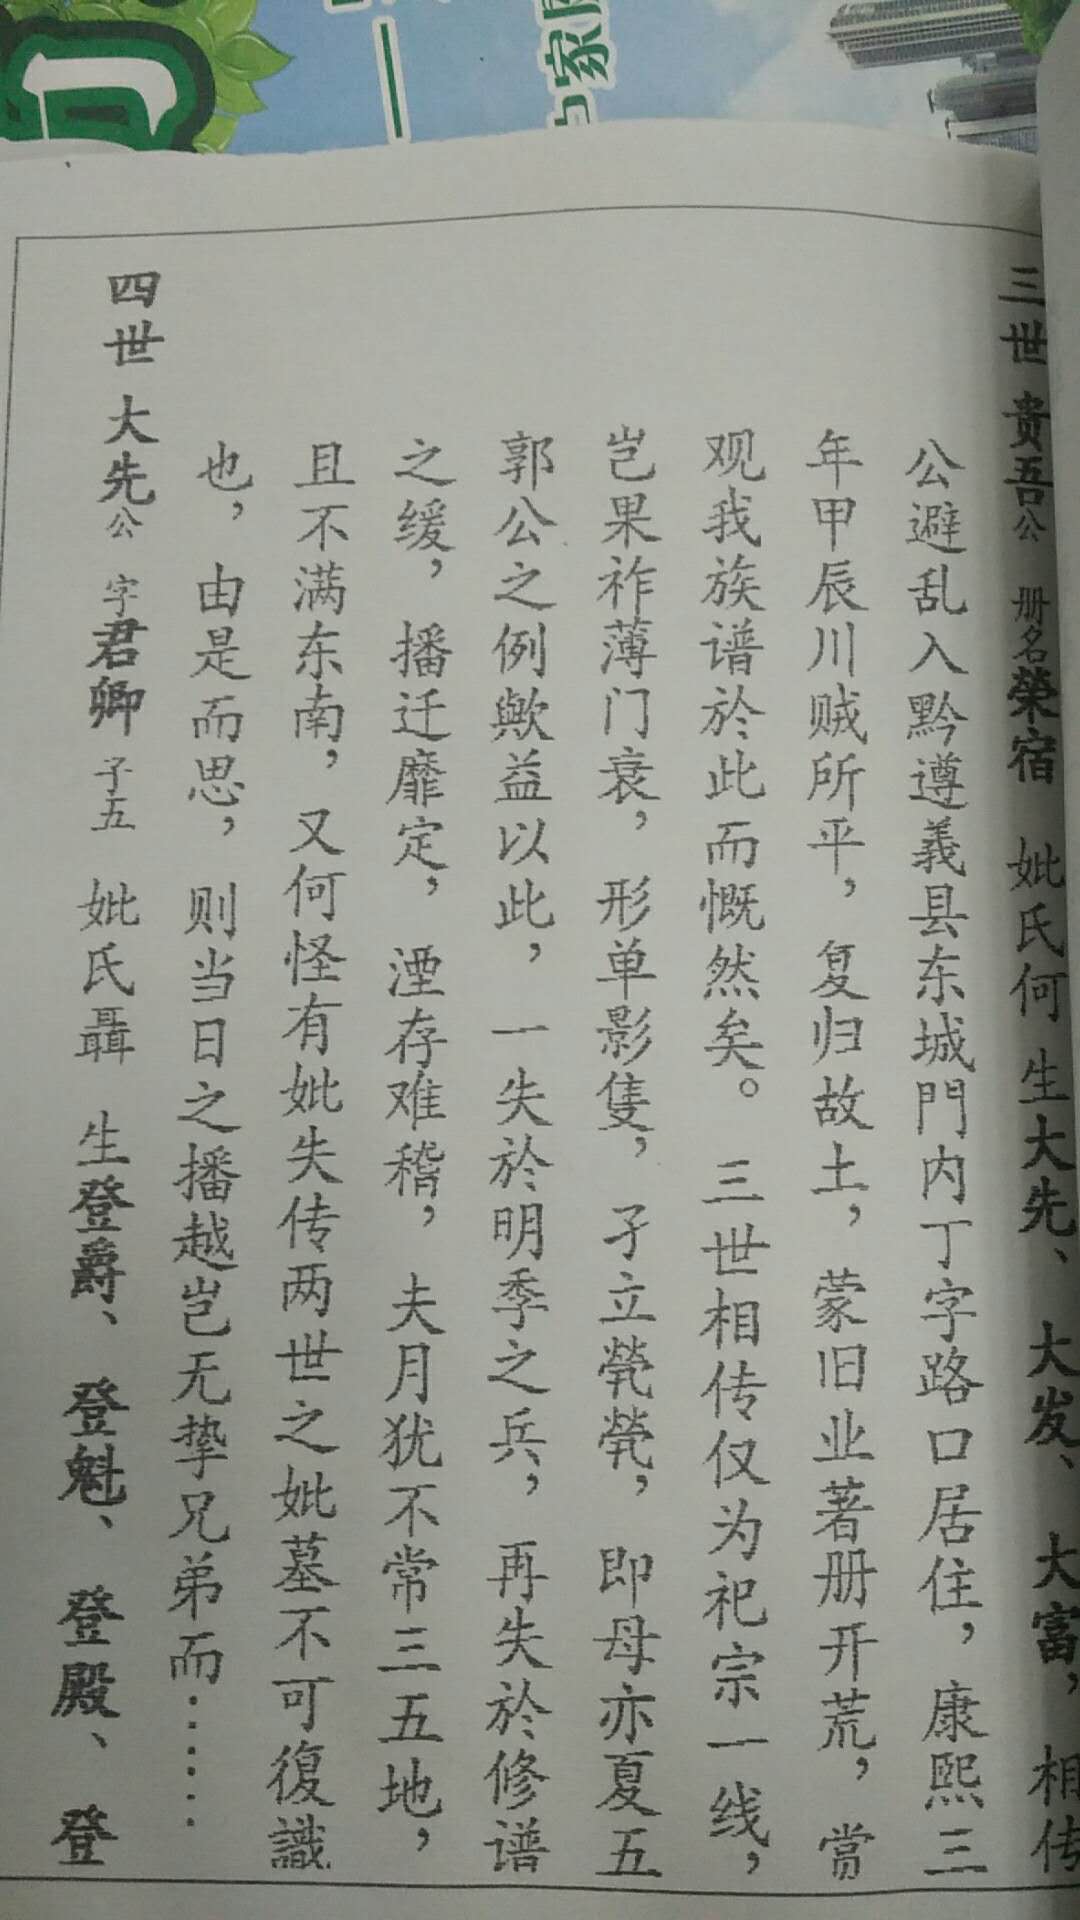 三世 贵吾公 册名榮宿 妣氏何 生大先、大发、大富，相传
公避乱入黔遵義县东城門内丁字路口居住，康熙三
年甲辰川贼所平，复归故土，蒙旧业著册开荒，赏
观我族谱於此而慨然矣。三世相传仅为祀宗一线，
岂果祚薄门衰，形单影隻，孑立煢煢，即母亦夏五
郭公之例歟益以此，一失於明季之兵，再失於修谱
之缓，播迁靡定，湮存难稽，夫月犹不常三五地，
且不满东南，又何怪有妣失传两世之妣墓不可復識
也，由是而思，则当日之播越岂无挚兄弟而……
四世 大先公 字君卿 子五 妣氏聶 生登爵、登魁、登殿、登
家